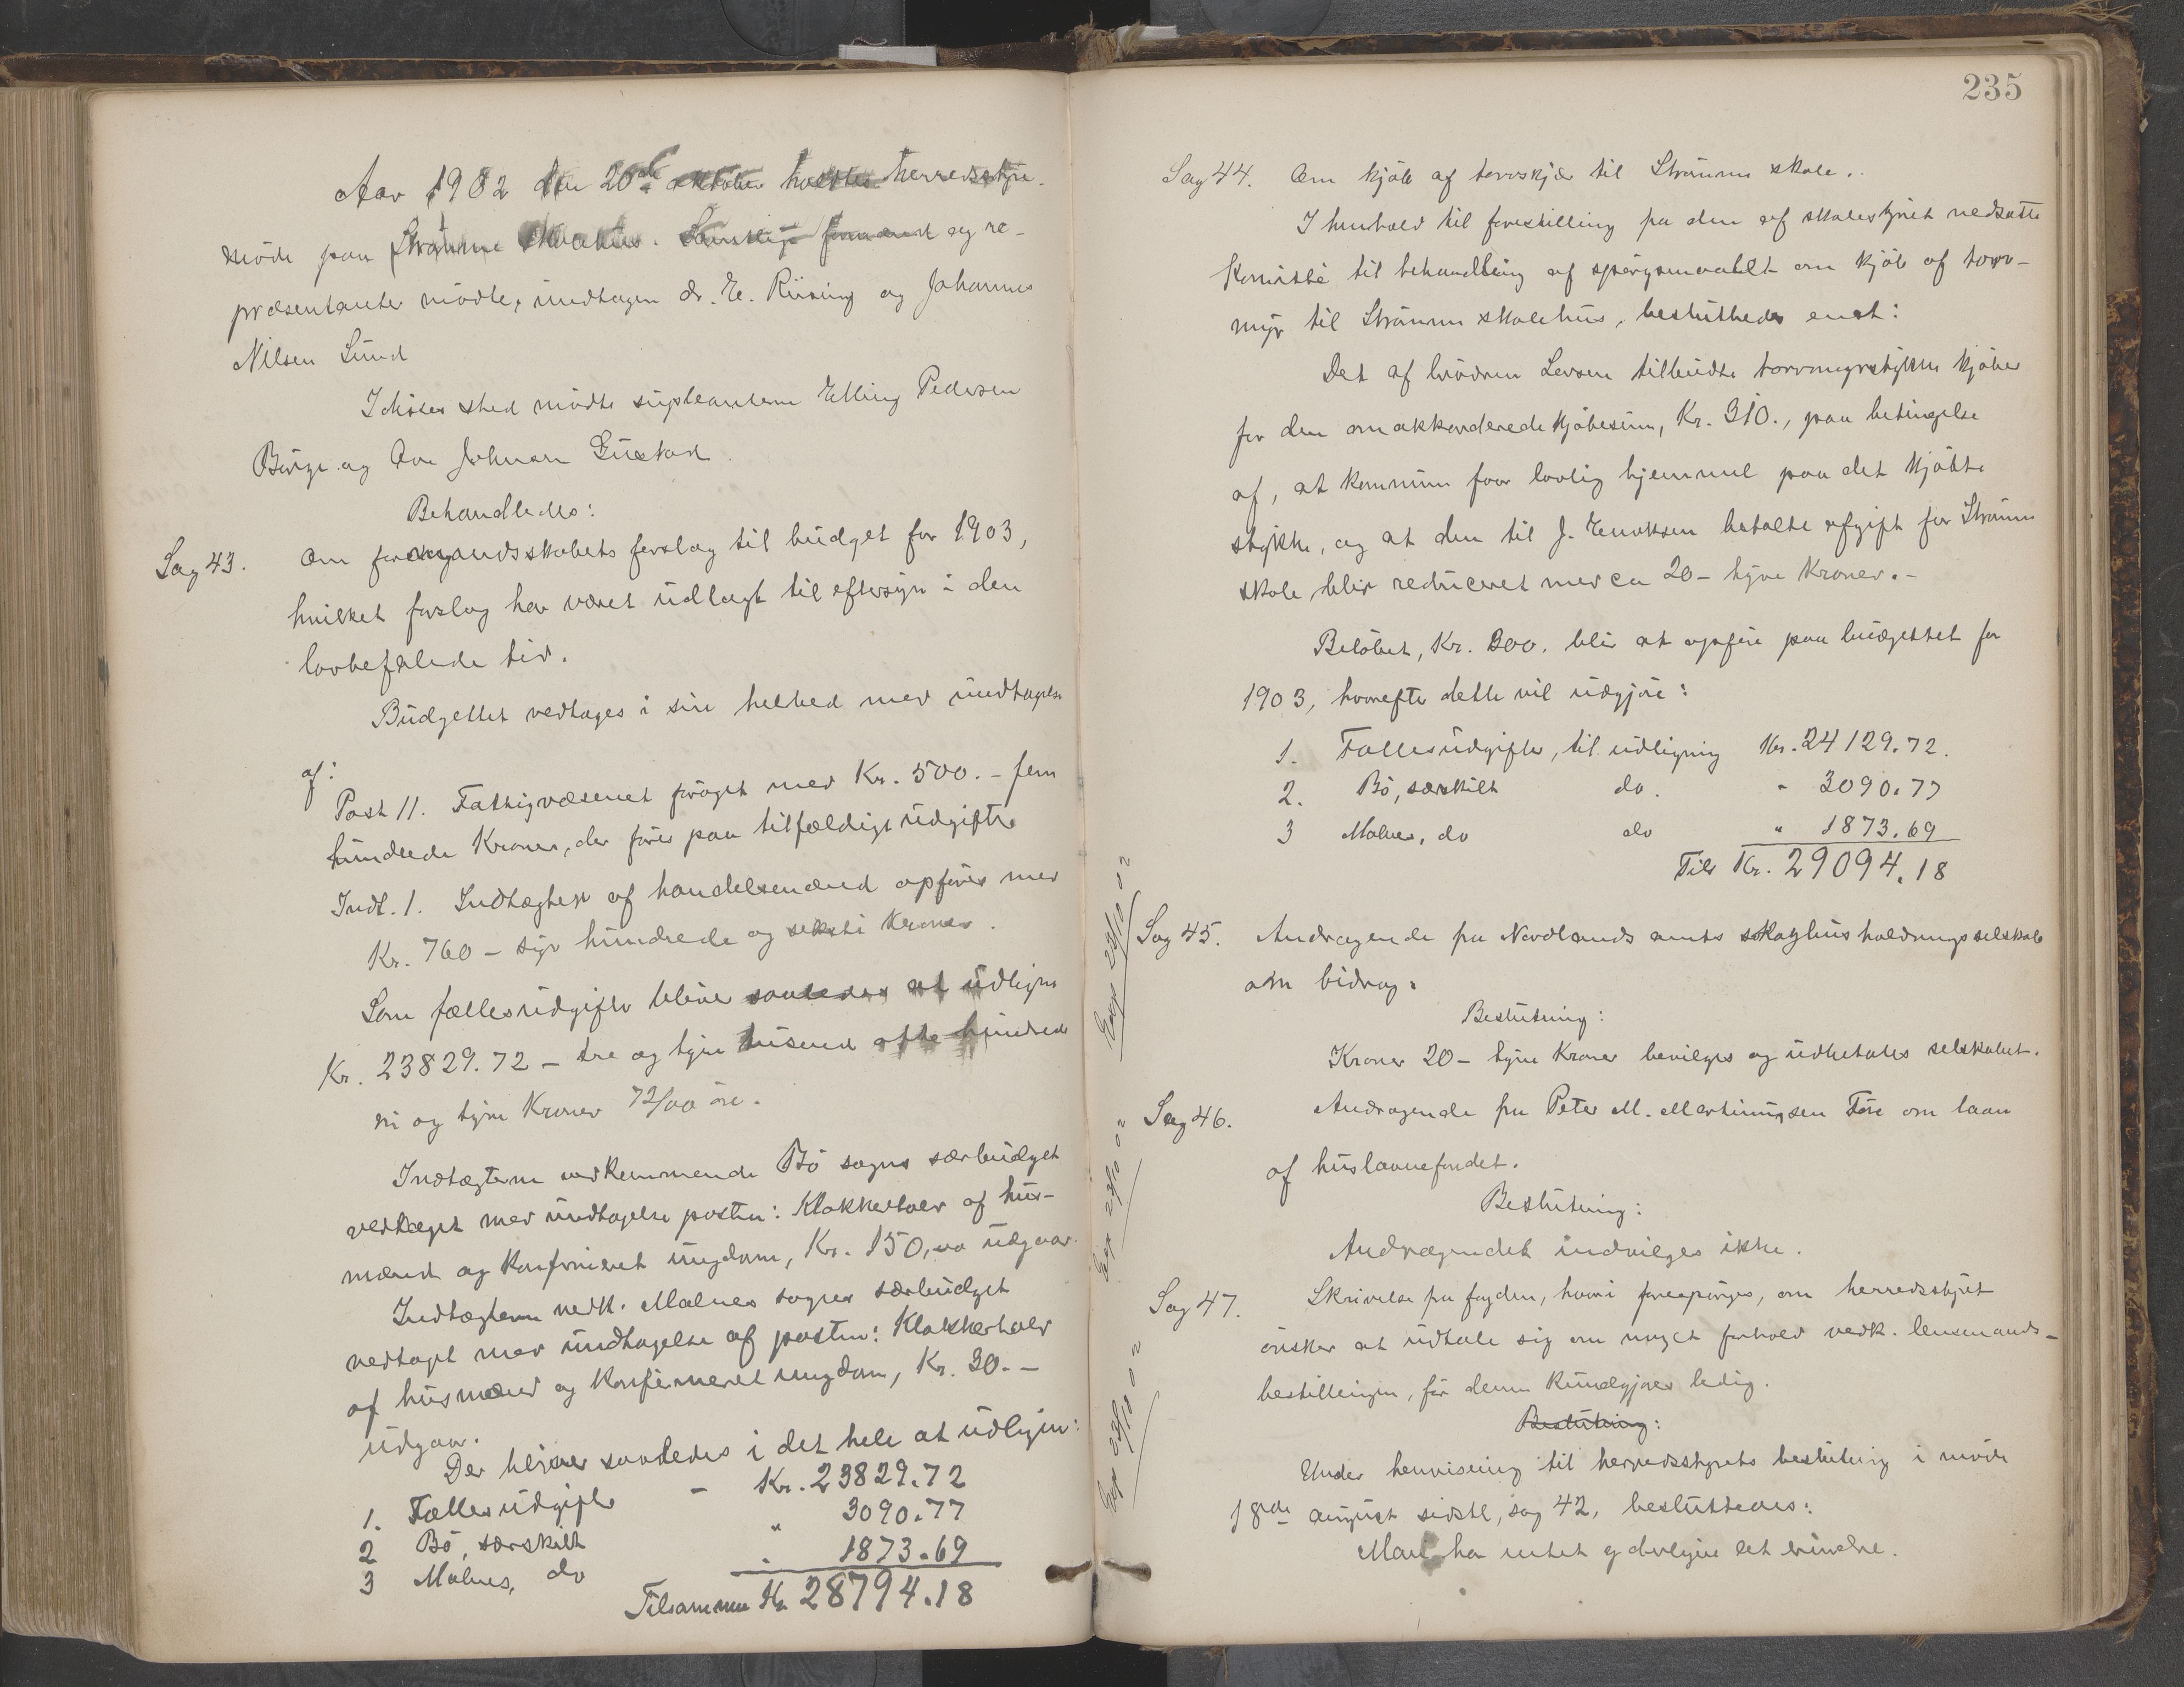 Aar 1902 den 20de oktober holdtes herredsstyre-
møde paa Strømme skolehus. Samtlige formænd og re-
præsentanter mødte, undtagen dr. E. Riising og Johannes
Nilsen Lund
I disses sted mødte supleanterne Elling Pedersen
Børge og Ove Johnsen Guustad.
Behandledes:
Sag 43. Om formandsskabets forslag til budget for 1903,
hvilket forslag har været udlagt til eftersyn i den
lovbefalede tid.
Budgettet vedtages i sin helhed med undtagelse
af:
Post 11. Fattigvæsenet forøget med Kr. 500. - fem
hundrede Kroner, der føres paa tilfældige udgifter
Indt. 1. Indtægten af handelsmænd opføres med
Kr. 760 - syv hundrede og seksti Kroner.
Som fællesudgifter bliver saaledes at udligne
Kr. 23829.72 - tre og tyve tusend otte hundrede
ni og tyve Kroner 72/00 øre.
Indtægterne vedkommende Bø sogns særbudget
vedtaget med undtagelse posten: Klokkertold af hus-
mænd og konfirmeret ungdom, Kr. 150,00 udgaar.
Indtægterne vedk. Malnes sogns særbudget
vedtaget med undtagelse af posten: Klokkertold
af husmænd og konfirmeret ungdom, Kr. 30. -
udgaar.
Der bliver saaledes i det hele at udligne:
1. Fællesudgifter - Kr. 23829.72
2 Bø, særskilt " 3090.77
3 Malnes, do " 1873.69
Tilsammen Kr. 28794.18
235
Sag 44. Om kjøb af torvskjær til Strømme skole.
I henhold til forestilling fra den af skolestyret nedsatte
Komitté til behandling af spørgsmaalet om kjøb af torv-
myr til Strømme skolehus, besluttedes enst:
Det af brødrene Larsen tilbudte torvmyrstykke kjøbes
for den omakkorderede kjøbesum, Kr. 310., paa betingelse
af, at kommunen faar lovlig hjemmel paa det kjøbte
stykke, og at den til J. Enoksen betalte afgift for Strømme
skole blir reduceret med ca 20 - tyve Kroner. -
Beløbet, Kr. 300. blir at opføre paa budgettet for
1903, hvorefter dette vil udgjøre:
1. Fællesudgifter, til udligning Kr. 24129.72.
2. Bø, særskilt do. " 3090.77
3 Malnes, do do " 1873.69
Tils Kr. 29094.18
Exp 23/10 02
Sag 45. Andragende fra Nordlands amts skoghusholdningsselskab
om bidrag.
Beslutning:
Kroner 20 - tyve Kroner bevilges og udbetales selskabet.
Exp 23/10 02
Sag 46. Andragende fra Peter M. Martinussen Føre om laan
af huslaanefondet.
Beslutning:
Andragendet indvilges ikke.
Exp 23/10 02
Sag 47. Skrivelse fra fogden, hvori forespørges, om herredsstyret
ønsker at udtale sig om noget forhold vedk. lensmands-
bestillingen, før denne kundgjøres ledig.
Beslutning:
Under henvisning til herredsstyrets beslutning i møde
18de august sidstl, sag 42, besluttedes:
Man har intet yderligere at erindre.